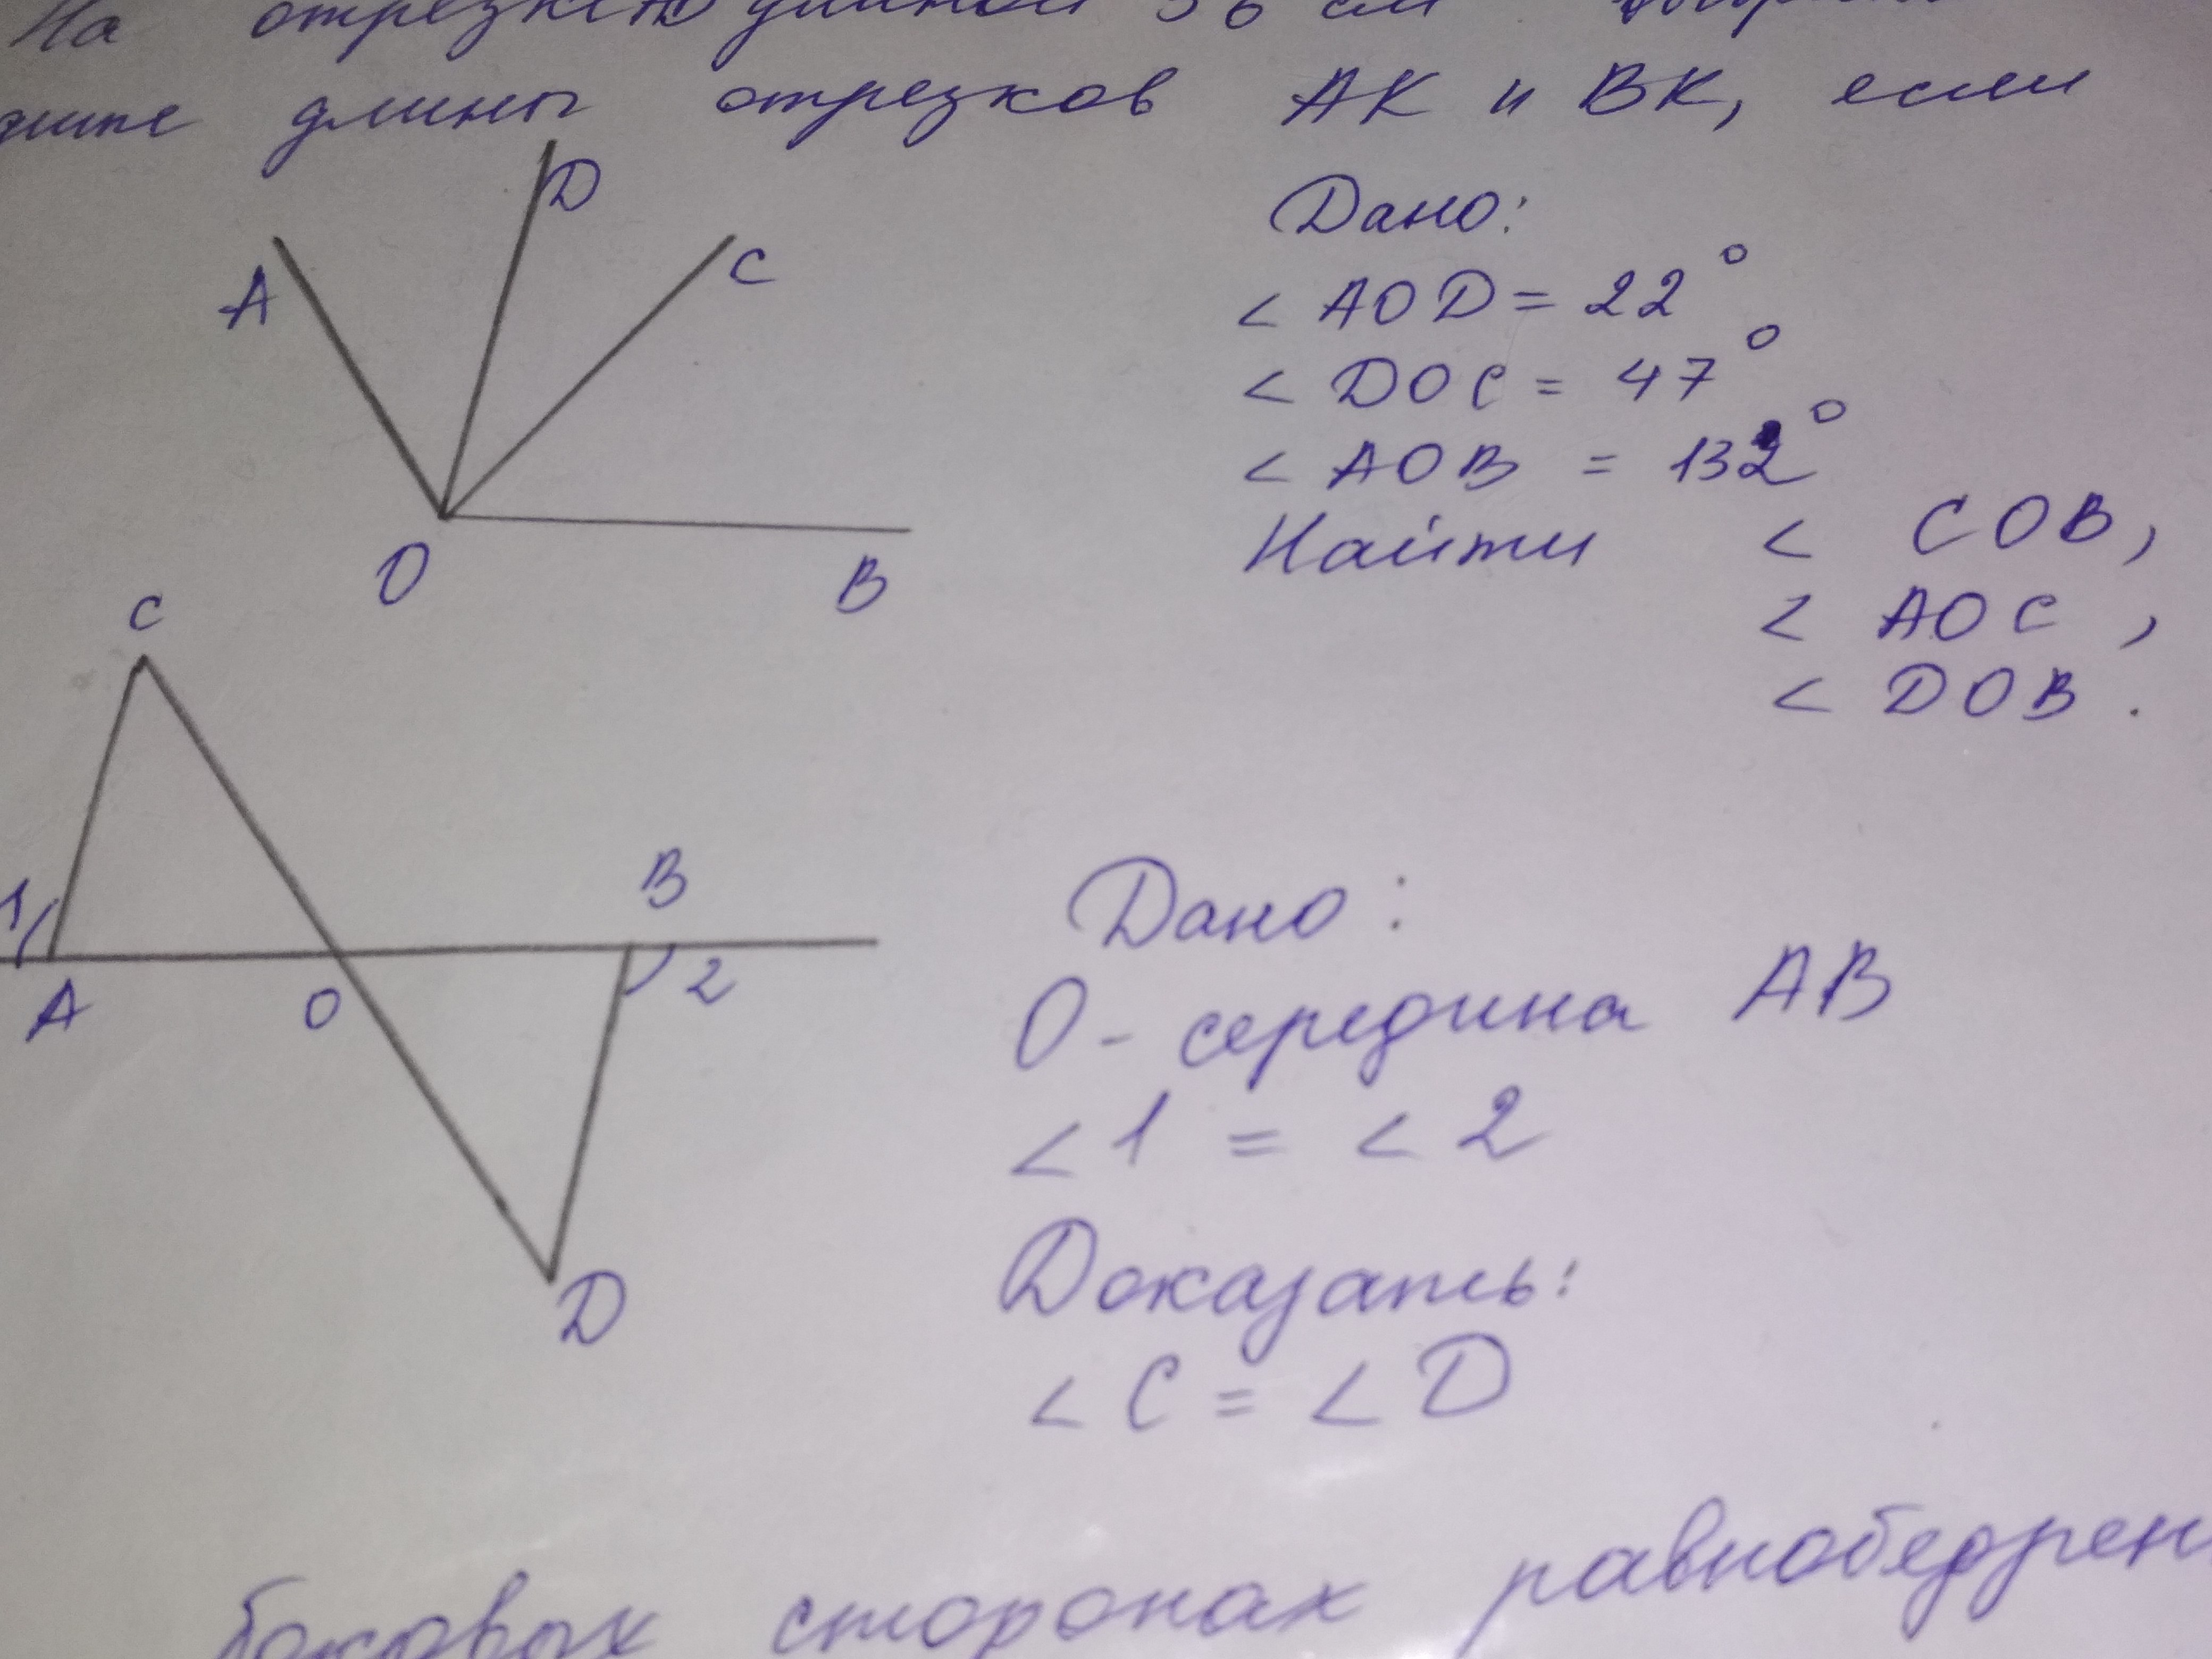 На отрезке длиной 36 см
длины отрезков АК и ВК, если
D
A
C
O
B
Дано:
< AOD = 22°
< DOC = 47°
< AOB = 132°
Найти < COB,
< AOC,
< DOB.
C
1
A
O
B
2
D
Дано:
O - середина AB
< 1 = < 2
Доказать:
< C = < D
боковых сторонах равнобедрен